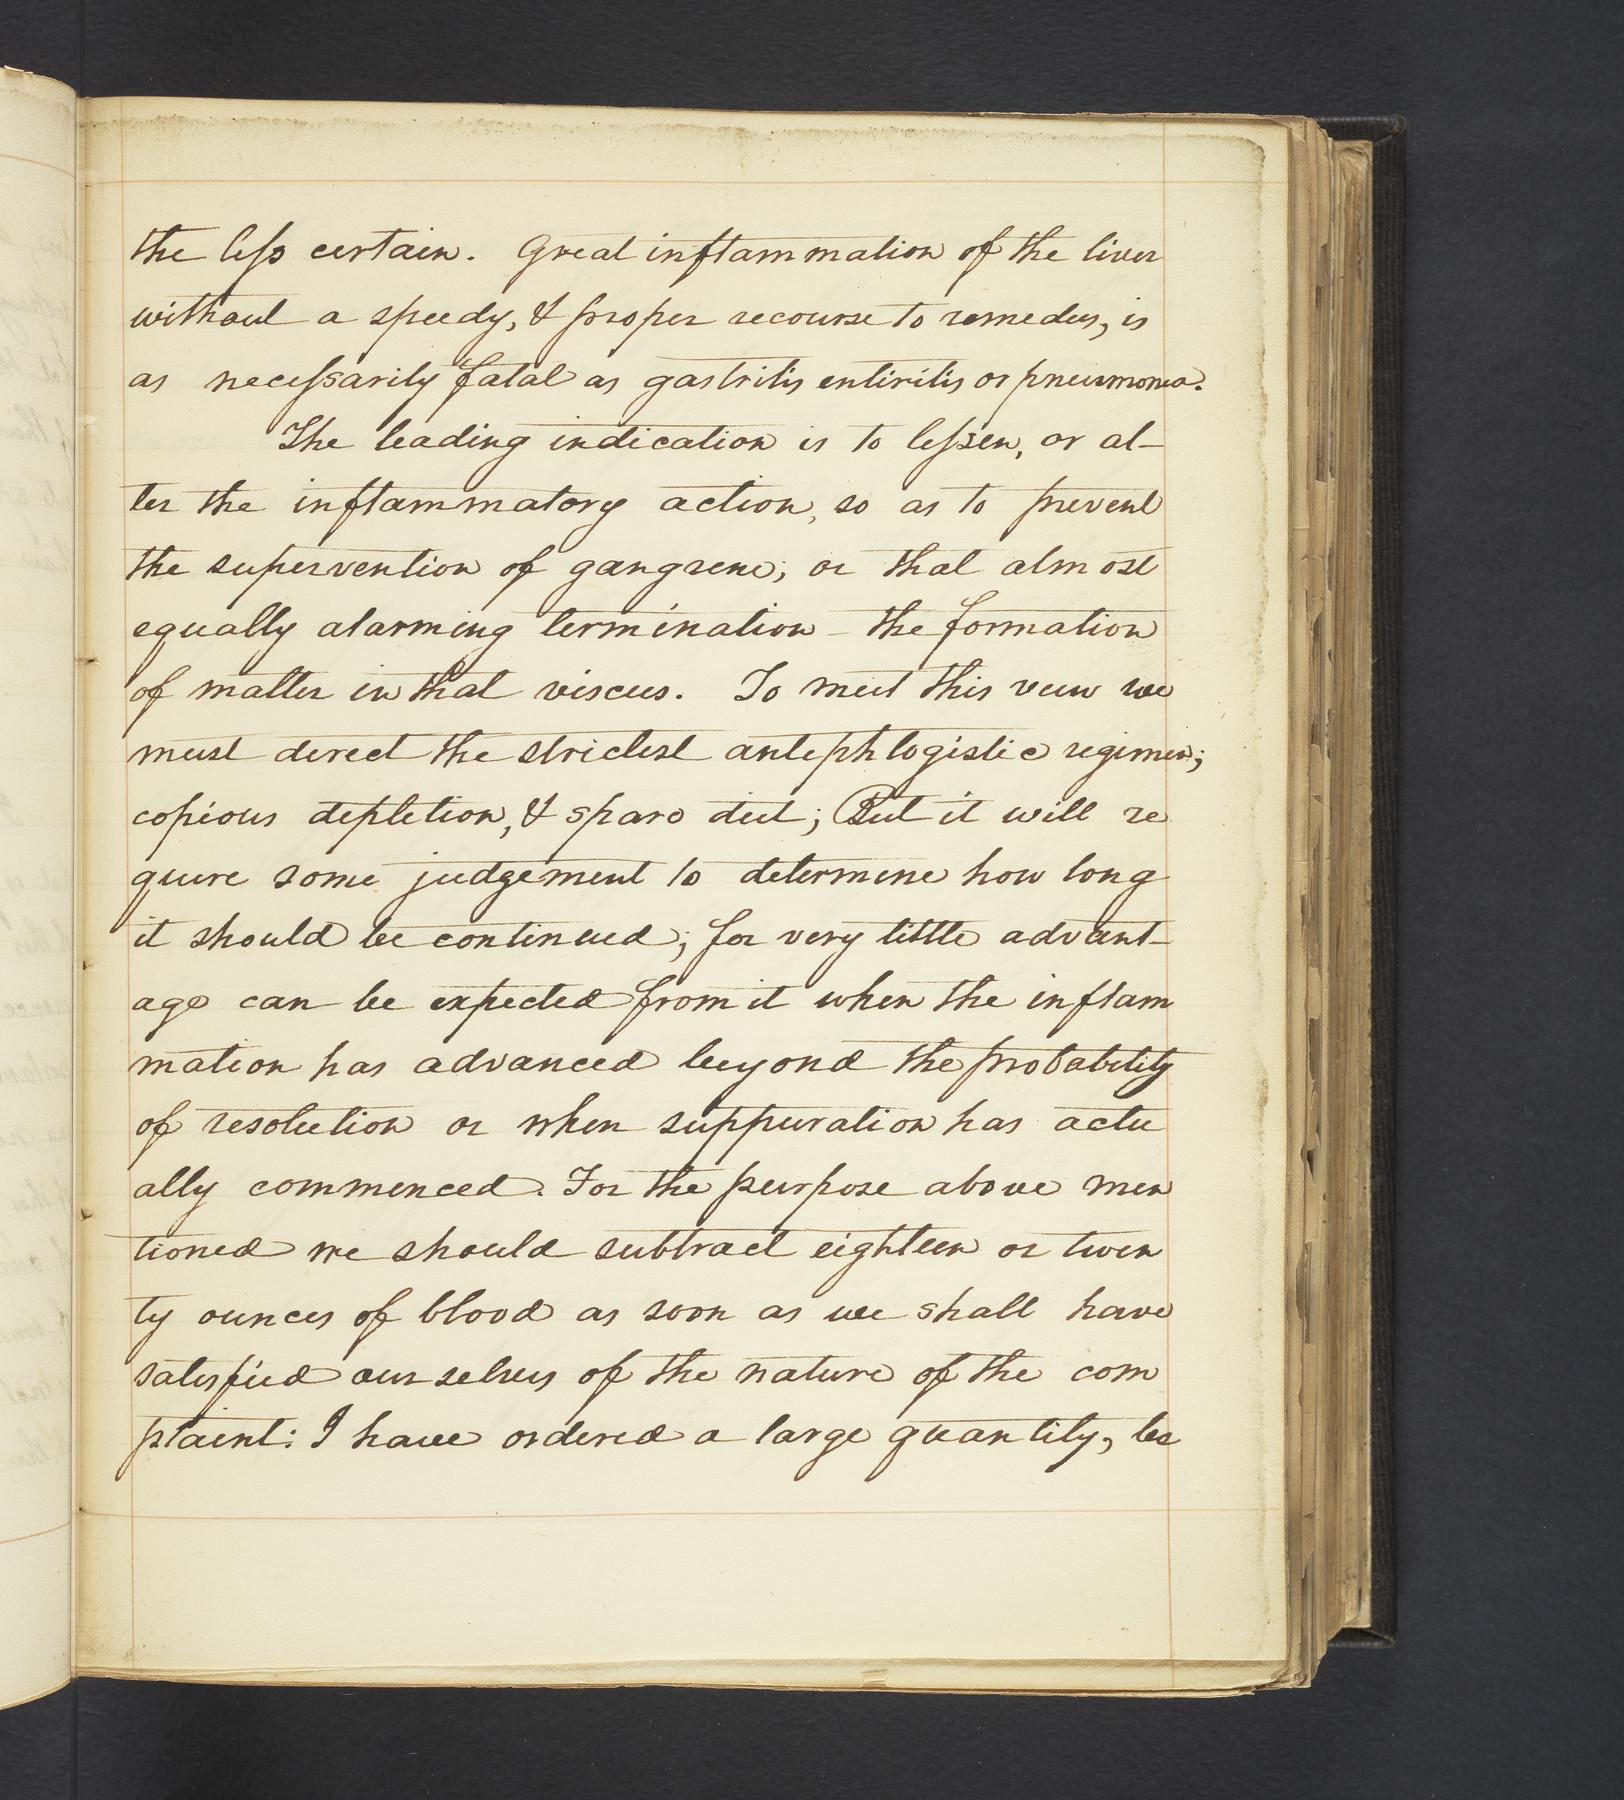 the less certain. Great inflammation of the liver
without a speedy, & proper recourse to remedies, is
as necessarily fatal as gastritis entiritis or pneumonia.
The leading indication is to lessen, or al-
ter the inflammatory action, so as to prevent
the supervention of gangrene; or that almost
equally alarming termination - the formation
of matter in that viscus. To meet this view we
must direct the strictest antiphlogistic regimen;
copious depletion, & spare diet; But it will re
quire some judgement to determine how long
it should be continued; for very little advant-
age can be expected from it when the inflam
mation has advanced beyond the probability
of resolution or when suppuration has actu
ally commenced. For the purpose above men
tioned we should subtract eighteen or twen
ty ounces of blood as soon as we shall have
satisfied ourselves of the nature of the com
plaint: I have ordered a large quantity, to be